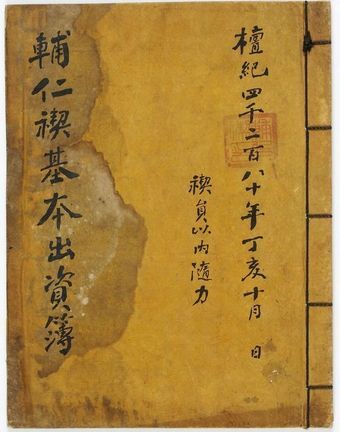 檀紀四千二百八十年丁亥十月 日
禊員以內隨力
輔仁禊基本出資簿